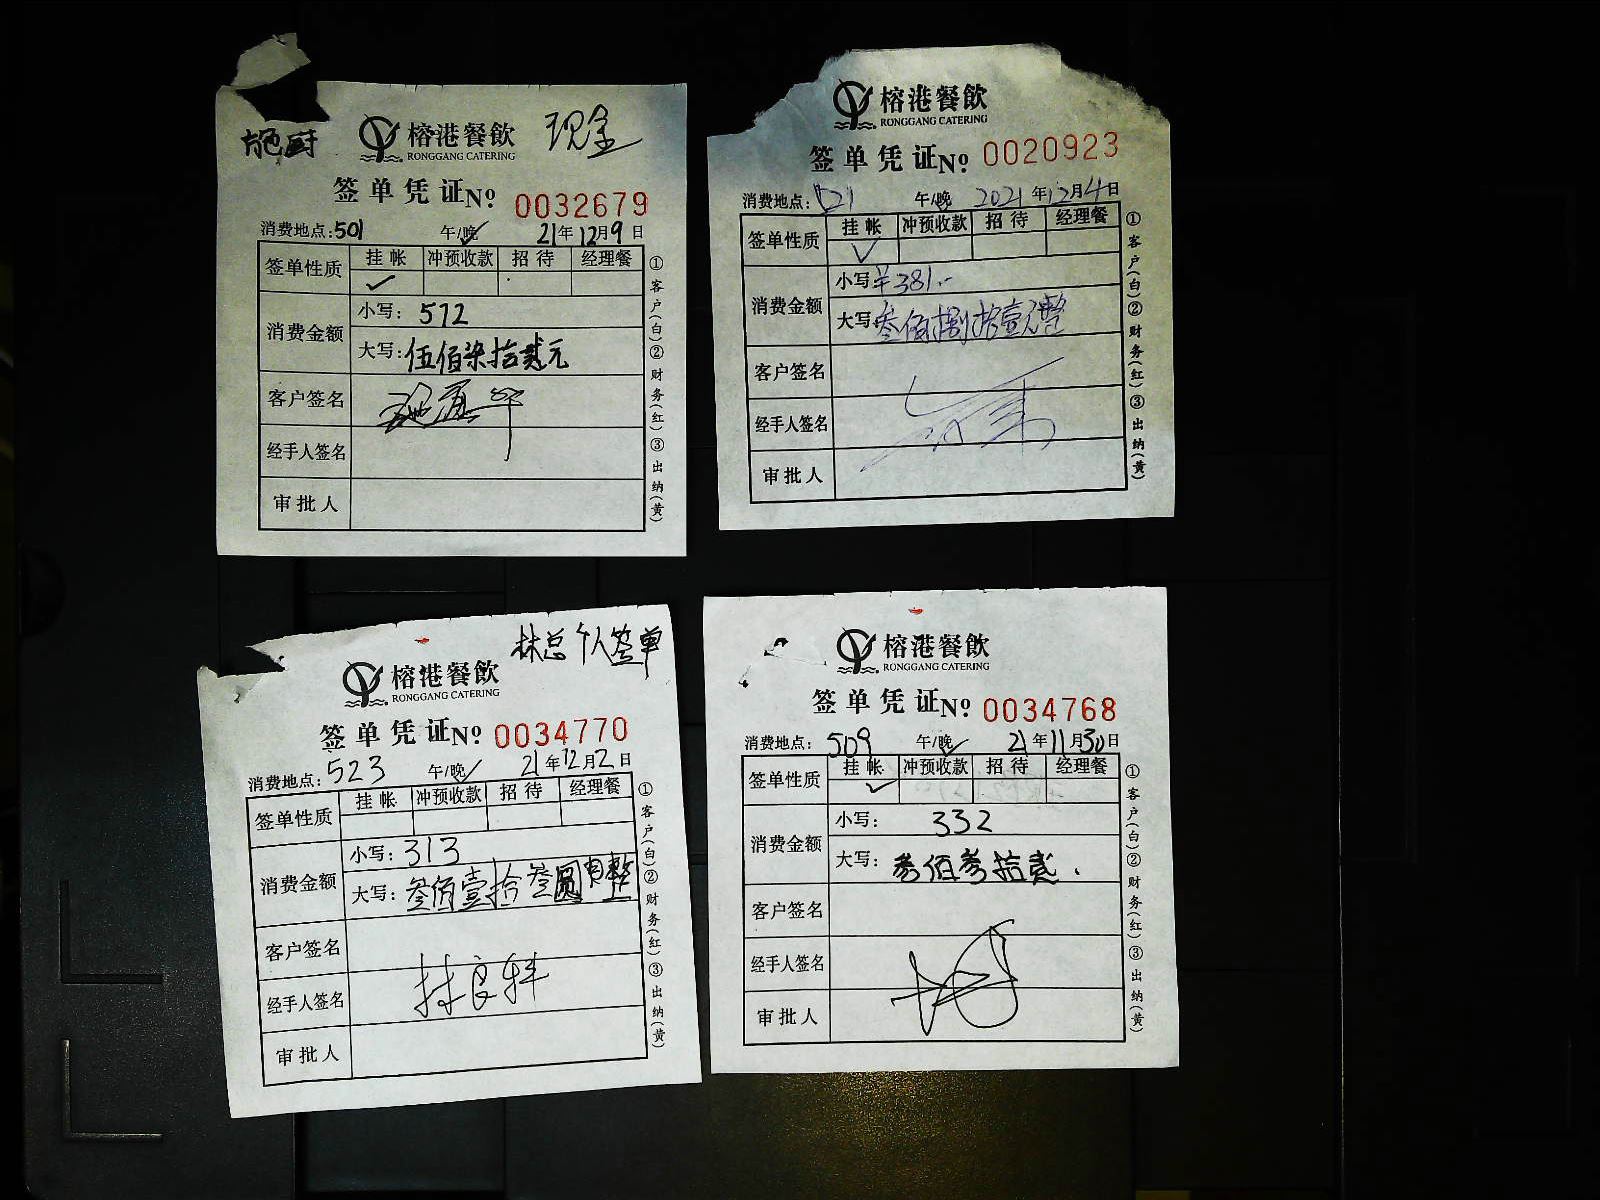 施厨
榕港餐飲 现金
RONGGANG CATERING
签单凭证 Nº 0032679
消费地点:501 午/晚✓ 21年12月9日
签单性质 挂帐 冲预收款 招待 经理餐
✓
消费金额 小写: 572
大写: 伍佰柒拾贰元
客户签名
经手人签名
审批人
①客户(白)②财务(红)③出纳(黄)
榕港餐飲
RONGGANG CATERING
签单凭证 Nº 0020923
消费地点: 521 午/晚 2021年12月4日
签单性质 挂帐 冲预收款 招待 经理餐
✓
消费金额 小写 ¥381.-
大写: 叁佰捌拾壹元整
客户签名
经手人签名
审批人
①客户(白)②财务(红)③出纳(黄)
林总个人签单
榕港餐飲
RONGGANG CATERING
签单凭证 Nº 0034770
消费地点: 523 午/晚✓ 21年12月2日
签单性质 挂帐 冲预收款 招待 经理餐
消费金额 小写: 313
大写: 叁佰壹拾叁圆整
客户签名
经手人签名
审批人
①客户(白)②财务(红)③出纳(黄)
榕港餐飲
RONGGANG CATERING
签单凭证 Nº 0034768
消费地点: 509 午/晚✓ 21年11月30日
签单性质 挂帐 冲预收款 招待 经理餐
✓
消费金额 小写: 332
大写: 叁佰叁拾贰.
客户签名
经手人签名
审批人
①客户(白)②财务(红)③出纳(黄)